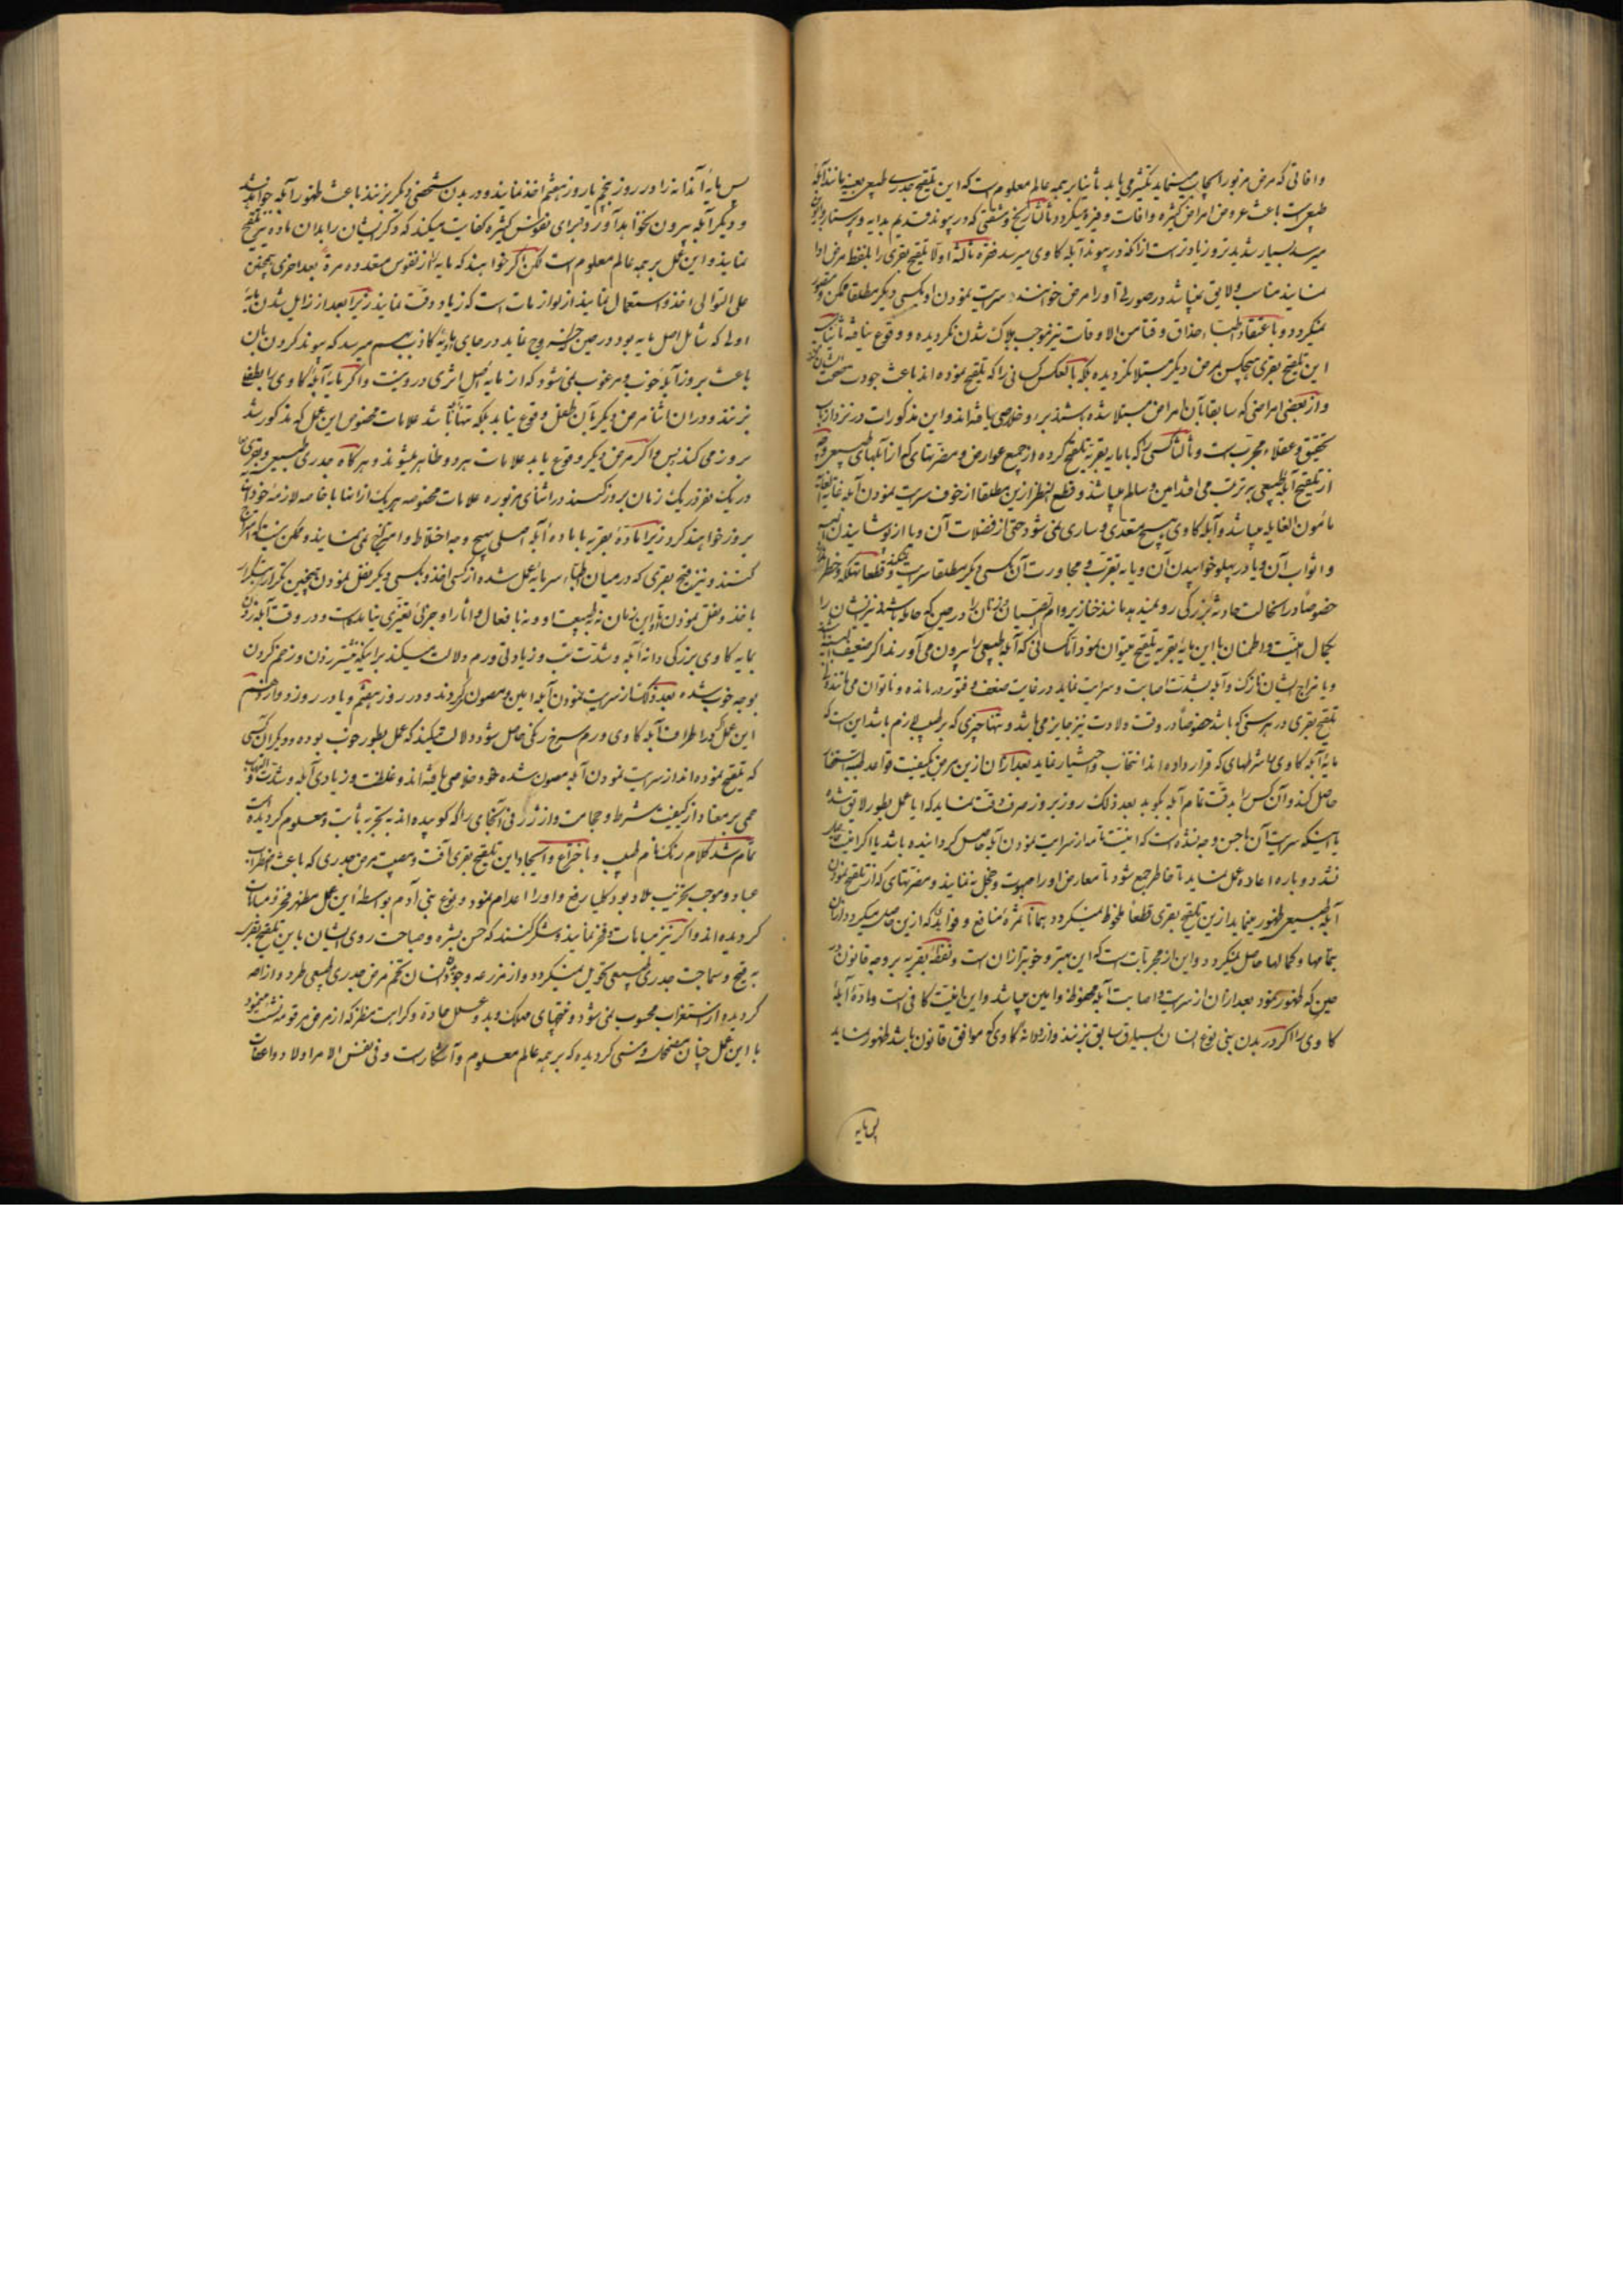 و افاتی که مرض مزبور ایجاب مینماید تکثیر می یابد ثانیا بر همه عالم معلوم است که این تلقیح جدری طبیعی بعینه مانند آبله
طبیعی است باعث عروض امراض کثیره و افات وفیره میگردد ثالثا رنج و مشقتی که در پیوند قدیم بدایه و پرستار
میرسد بسیار شدیدتر و زیادتر است از انکه در پیوند آبله کاوی میرسد فقره ثالثه اولا تلقیح بقری را بلفظ مرض ادا
نمایند مناسب و لایق نمیباشد در صورتی آنرا مرض خوانند که سرایت نمودن او بکسی دیگر مطلقا ممکن و متصور
نمیگردد و باعتقاد اطباء حذاق وقتا من الاوقات نیز موجب هلاک شدن نگردیده و وقوع نیافته ثانیا
این تلقیح بقری هیچکس بمرض دیگر مبتلا نگردیده بلکه بالعکس کسانی را که تلقیح نموده اند باعث جودت صحت
و از بعضی امراضی که سابقا بآن امراض مبتلا شده باشند برء و خلاصی یافته اند و این مذکورات در نزد ارباب
تحقیق و عقلاء مجرب است و ثالثا کسی را که با مایه بقریه تلقیح کرده از جمیع عوارض و مضرتهای که از آبلهای طبیعی و
از تلقیح آبله طبیعی بر ترتب می افتد امین و سالم میباشد و قطع النظر ازین مطلقا از خوف سرایت نمودن آبله
مأمون الغایله میباشد و آبله کاوی هیچ متعدی و ساری نمی شود حتی از فضلات آن و یا از پوشانیدن البسه
و اثواب آن و یا در پهلو خوابیدن آن و یا به تقرب و مجاورت آن کسی دیگر مطلقا سرایت نمیکند و قطعا تهلکه و خطر
خصوصا در انحالت حادثه بزرگی رو نمیدهد مانند خنازیر و ام الصبیان زنان را در حین که حامله باشند نیز ایشان را
بکمال امنیت و اطمنان با این مایه بقریه تلقیح میتوان نمود انکسانی که آبله طبیعی را بیرون می آورند اگر ضعیف البنیه
و یا مزاج ایشان نازک و آبله بشدت اصابت و سرایت نماید در غایت ضعف و فتور در مانده و ناتوان می مانند
تلقیح بقری در هر سنی که باشد خصوصا در وقت ولادت نیز جایز می باشد و تنها چیزی که بر طبیب لازم باشد این است که
مایه آبله کاوی با شرطهای که قرار داده اند انتخاب و اختیار نماید بعد از ان ازین مرض بکیفیت قواعد طبیه استحضار
حاصل کند و آن کس را بدقت تمام آبله بکوبد بعد ذلک روز بروز صرف دقت نماید که ایا عمل بطور لایق شده
یا اینکه سرایت آن باحسن وجه نشده است که امنیت تامه از سرایت نمودن آبله حاصل گردانیده باشد یا اگر امنیت حاصل
نشد دوباره اعاده عمل نماید تا خاطر جمع شود تا معارض او را مبهوت و خجل نه نمایند و مضرتهای که از تلقیح نمودن
آبله طبیعی ظهور مینماید ازین تلقیح بقری قطعا ملحوظ نمیگردد همانا ثمره منافع و فواید که ازین حاصل میگردد از ان
بتمامها و کمالها حاصل نمیگردد و این از مجربات است که این بهتر و خوبتر از ان است و نقطه بقریه بر وجه قانون در
حین که ظهور نمود بعد از ان از سرایت و اصابت آبله محفوظ و امین میباشد و این امنیت کافی است و ماده آبله
کاوی را اگر در بدن بنی نوع انسان بسیاق سابق بزنند و از دانه کاوی که موافق قانون باشد ظهور نماید
پس مایه
پس مایه آندانه را در روز پنجم یا روز هفتم اخذ نمایند و در بدن شخصی دیگر بزنند باعث ظهور آبله خواهد شد
و دیگر آبله بیرون نخواهد آورد و برای نفوس کثیره کفایت میکند که دگر ایشان را بدان ماده تلقیح
نمایند و این عمل بر همه عالم معلوم است لکن اگر خواهند که مایه را از نفوس متعدده مرة بعد اخری همچنین
علی التوالی اخذ و استعمال نمایند از لوازمات است که زیاد دقت نمایند زیرا بعد از زایل شدن مایه
اولی که شامل اصل مایه بود در حین خروج نماید در جای او مایه کاذب بهم میرسد که پیوند کردن بآن
باعث بروز آبله خوب و مرغوب نمی شود که از مایه اصل اثری درو نیست و اگر مایه آبله کاوی را بطفلی
بزنند و در ان اثنا مرض دیگر بآن طفل وقوع نیابد بلکه تنها باشد علامات مخصوص این عمل که مذکور شد
بروز می کند پس و اگر مرض دیگر وقوع یابد علامات هر دو ظاهر میشوند و هرگاه جدری طبیعی و بقری
در یک نفر در یک زمان بروز کنند در اثنای مزبوره علامات مخصوصه هر یک از اینها با خاصه لازمه خود
بروز خواهند کرد زیرا ماده بقریه با ماده آبله اصلی هیچ وجه اختلاط و امتزاج نمی نمایند و ممکن نیست که امتزاج
کنند و نیز تلقیح بقری که در میان اطباء سرمایه عمل شده از کسی اخذ و بکسی دیگر نقل نمودن همچنین تکرار بتکرار
باخذ و نقل نمودن تا این زمان نه بطبیعت او و نه بافعال و اثار او جزئی تغییری نیامده است و در وقت آبله زدن
بمایه کاوی بزرگی دانه آبله و شدت تب و زیادتی ورم دلالت میکند بر اینکه نیشتر زدن و زخم کردن
بوجه خوب شده بعد ذلک از سرایت نمودن آبله امین و مصون گردند و در روز هفتم و یا در روز دوازدهم
این عمل که در اطراف آبله کاوی ورم سرخ رنگی حاصل شود دلالت میکند که عمل بطور خوب بوده و دیگر آن کسی
که تلقیح نموده اند از سرایت نمودن آبله مصون شده خود خلاصی یافته اند و غلظت و زیادی آبله و شدت التهاب و
حمی بر معتاد از کیفیت شرط و حجامت و از زرفی آنجای را که کوبیده اند به تجربه ثابت و معلوم گردیده است
تمام شد کلام رنک نام طبیب و باختراع و ایجاد این تلقیح بقری آفت و مصیبت مرض جدری که باعث اضطراب
عباد و موجب تخریب بلاد بود کلیا رفع و او را اعدام نمود و نوع بنی آدم بواسطه این عمل مظهر فخر و مباهات
گردیده اند و اگر نیز مباهات و فخر نمایند و شکر کنند که حسن بشره و صباحت روی ایشان باین تلقیح بقری
به قبح و سماجت جدری طبیعی تحویل نمیگردد و از مزرعه وجود انسان تخم مرض جدری طبیعی طرد و ازاله
گردیده از استغراب محسوب نمی شود و نتیجهای مهلک و بد و علل حاده و کراهت منظر که از مرض مرقومه نشأت مینمود
با این عمل چنان مضمحل و منسی گردیده که بر همه عالم معلوم و آشکار است و فی نفس الامر اولاد و اعقاب